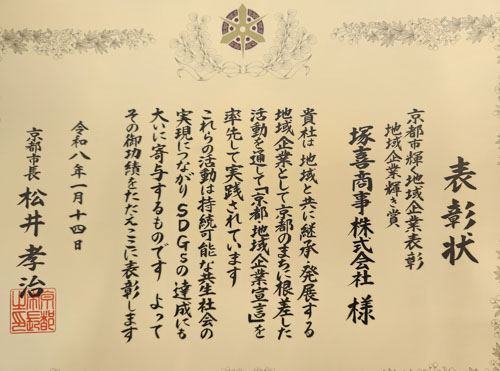 表彰状
京都市輝く地域企業表彰
地域企業輝き賞
塚喜商事株式会社 様
貴社は 地域と共に継承 発展する
地域企業として京都のまちに根差した
活動を通して「京都 地域企業宣言」を
率先して実践されています
これらの活動は持続可能な共生社会の
実現につながり SDGsの達成にも
大いに寄与するものです よって
その御功績をたたえここに表彰します
令和八年一月十四日
京都市長 松井孝治
京都市長之印